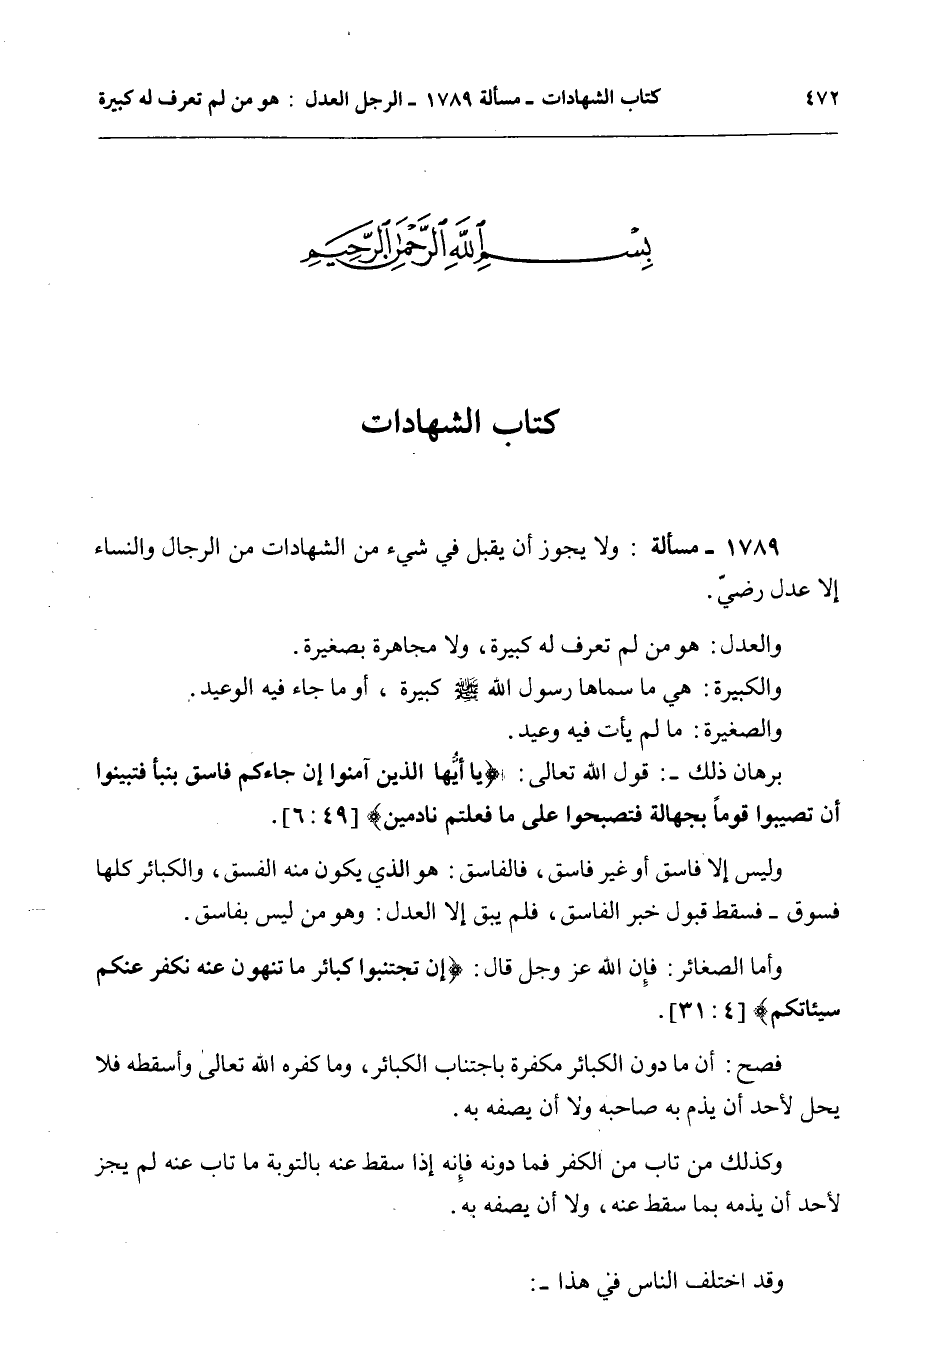 ٤٧٢ كتاب الشهادات ـ مسألة ١٧٨٩ ـ الرجل العدل : هو من لم تعرف له كبيرة
بِسْمِ اللَّهِ الرَّحْمَٰنِ الرَّحِيمِ
كتاب الشهادات
١٧٨٩ ـ مسألة : ولا يجوز أن يقبل في شيء من الشهادات من الرجال والنساء
إلا عدل رضيّ.
والعدل: هو من لم تعرف له كبيرة، ولا مجاهرة بصغيرة.
والكبيرة: هي ما سماها رسول الله ﷺ كبيرة ، أو ما جاء فيه الوعيد.
والصغيرة: ما لم يأت فيه وعيد.
برهان ذلك ـ: قول الله تعالى: ﴿يا أيُّها الذين آمنوا إن جاءكم فاسق بنبأ فتبينوا
أن تصيبوا قوماً بجهالة فتصبحوا على ما فعلتم نادمين﴾ [٤٩ : ٦].
وليس إلا فاسق أو غير فاسق، فالفاسق: هو الذي يكون منه الفسق، والكبائر كلها
فسوق ـ فسقط قبول خبر الفاسق، فلم يبق إلا العدل: وهو من ليس بفاسق.
وأما الصغائر: فإن الله عز وجل قال: ﴿إن تجتنبوا كبائر ما تنهون عنه نكفر عنكم
سيئاتكم﴾ [٤ : ٣١].
فصح: أن ما دون الكبائر مكفرة باجتناب الكبائر، وما كفره الله تعالى وأسقطه فلا
يحل لأحد أن يذم به صاحبه ولا أن يصفه به.
وكذلك من تاب من الكفر فما دونه فإنه إذا سقط عنه بالتوبة ما تاب عنه لم يجز
لأحد أن يذمه بما سقط عنه، ولا أن يصفه به.
وقد اختلف الناس في هذا ـ: